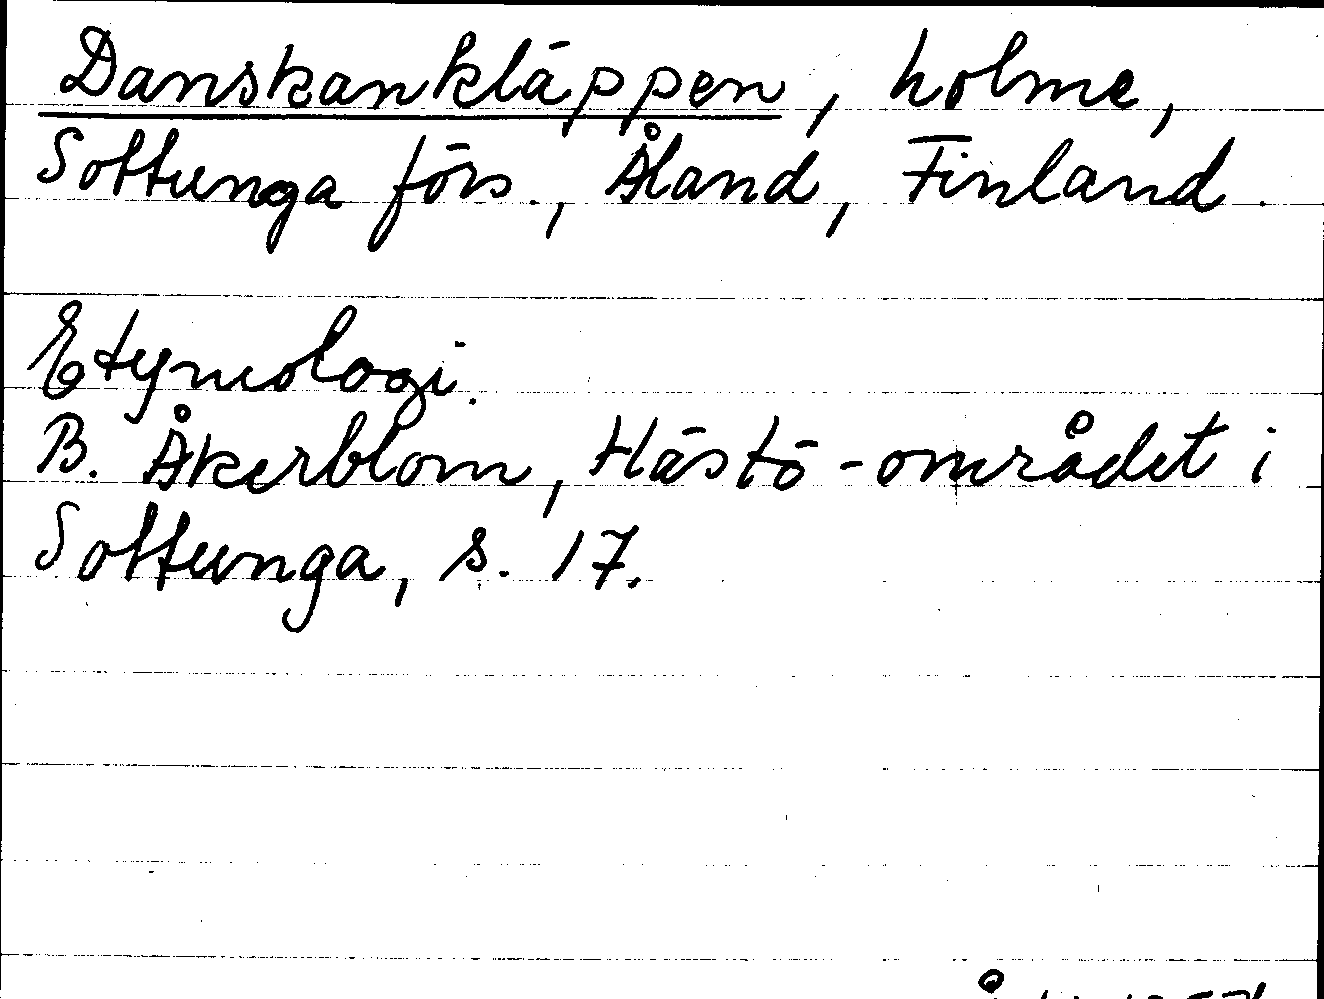 Danskankläppen, holme,
Sottunga förs., Åland, Finland.
Etymologi.
B. Åkerblom, Hästö-området i
Sottunga, s. 17.